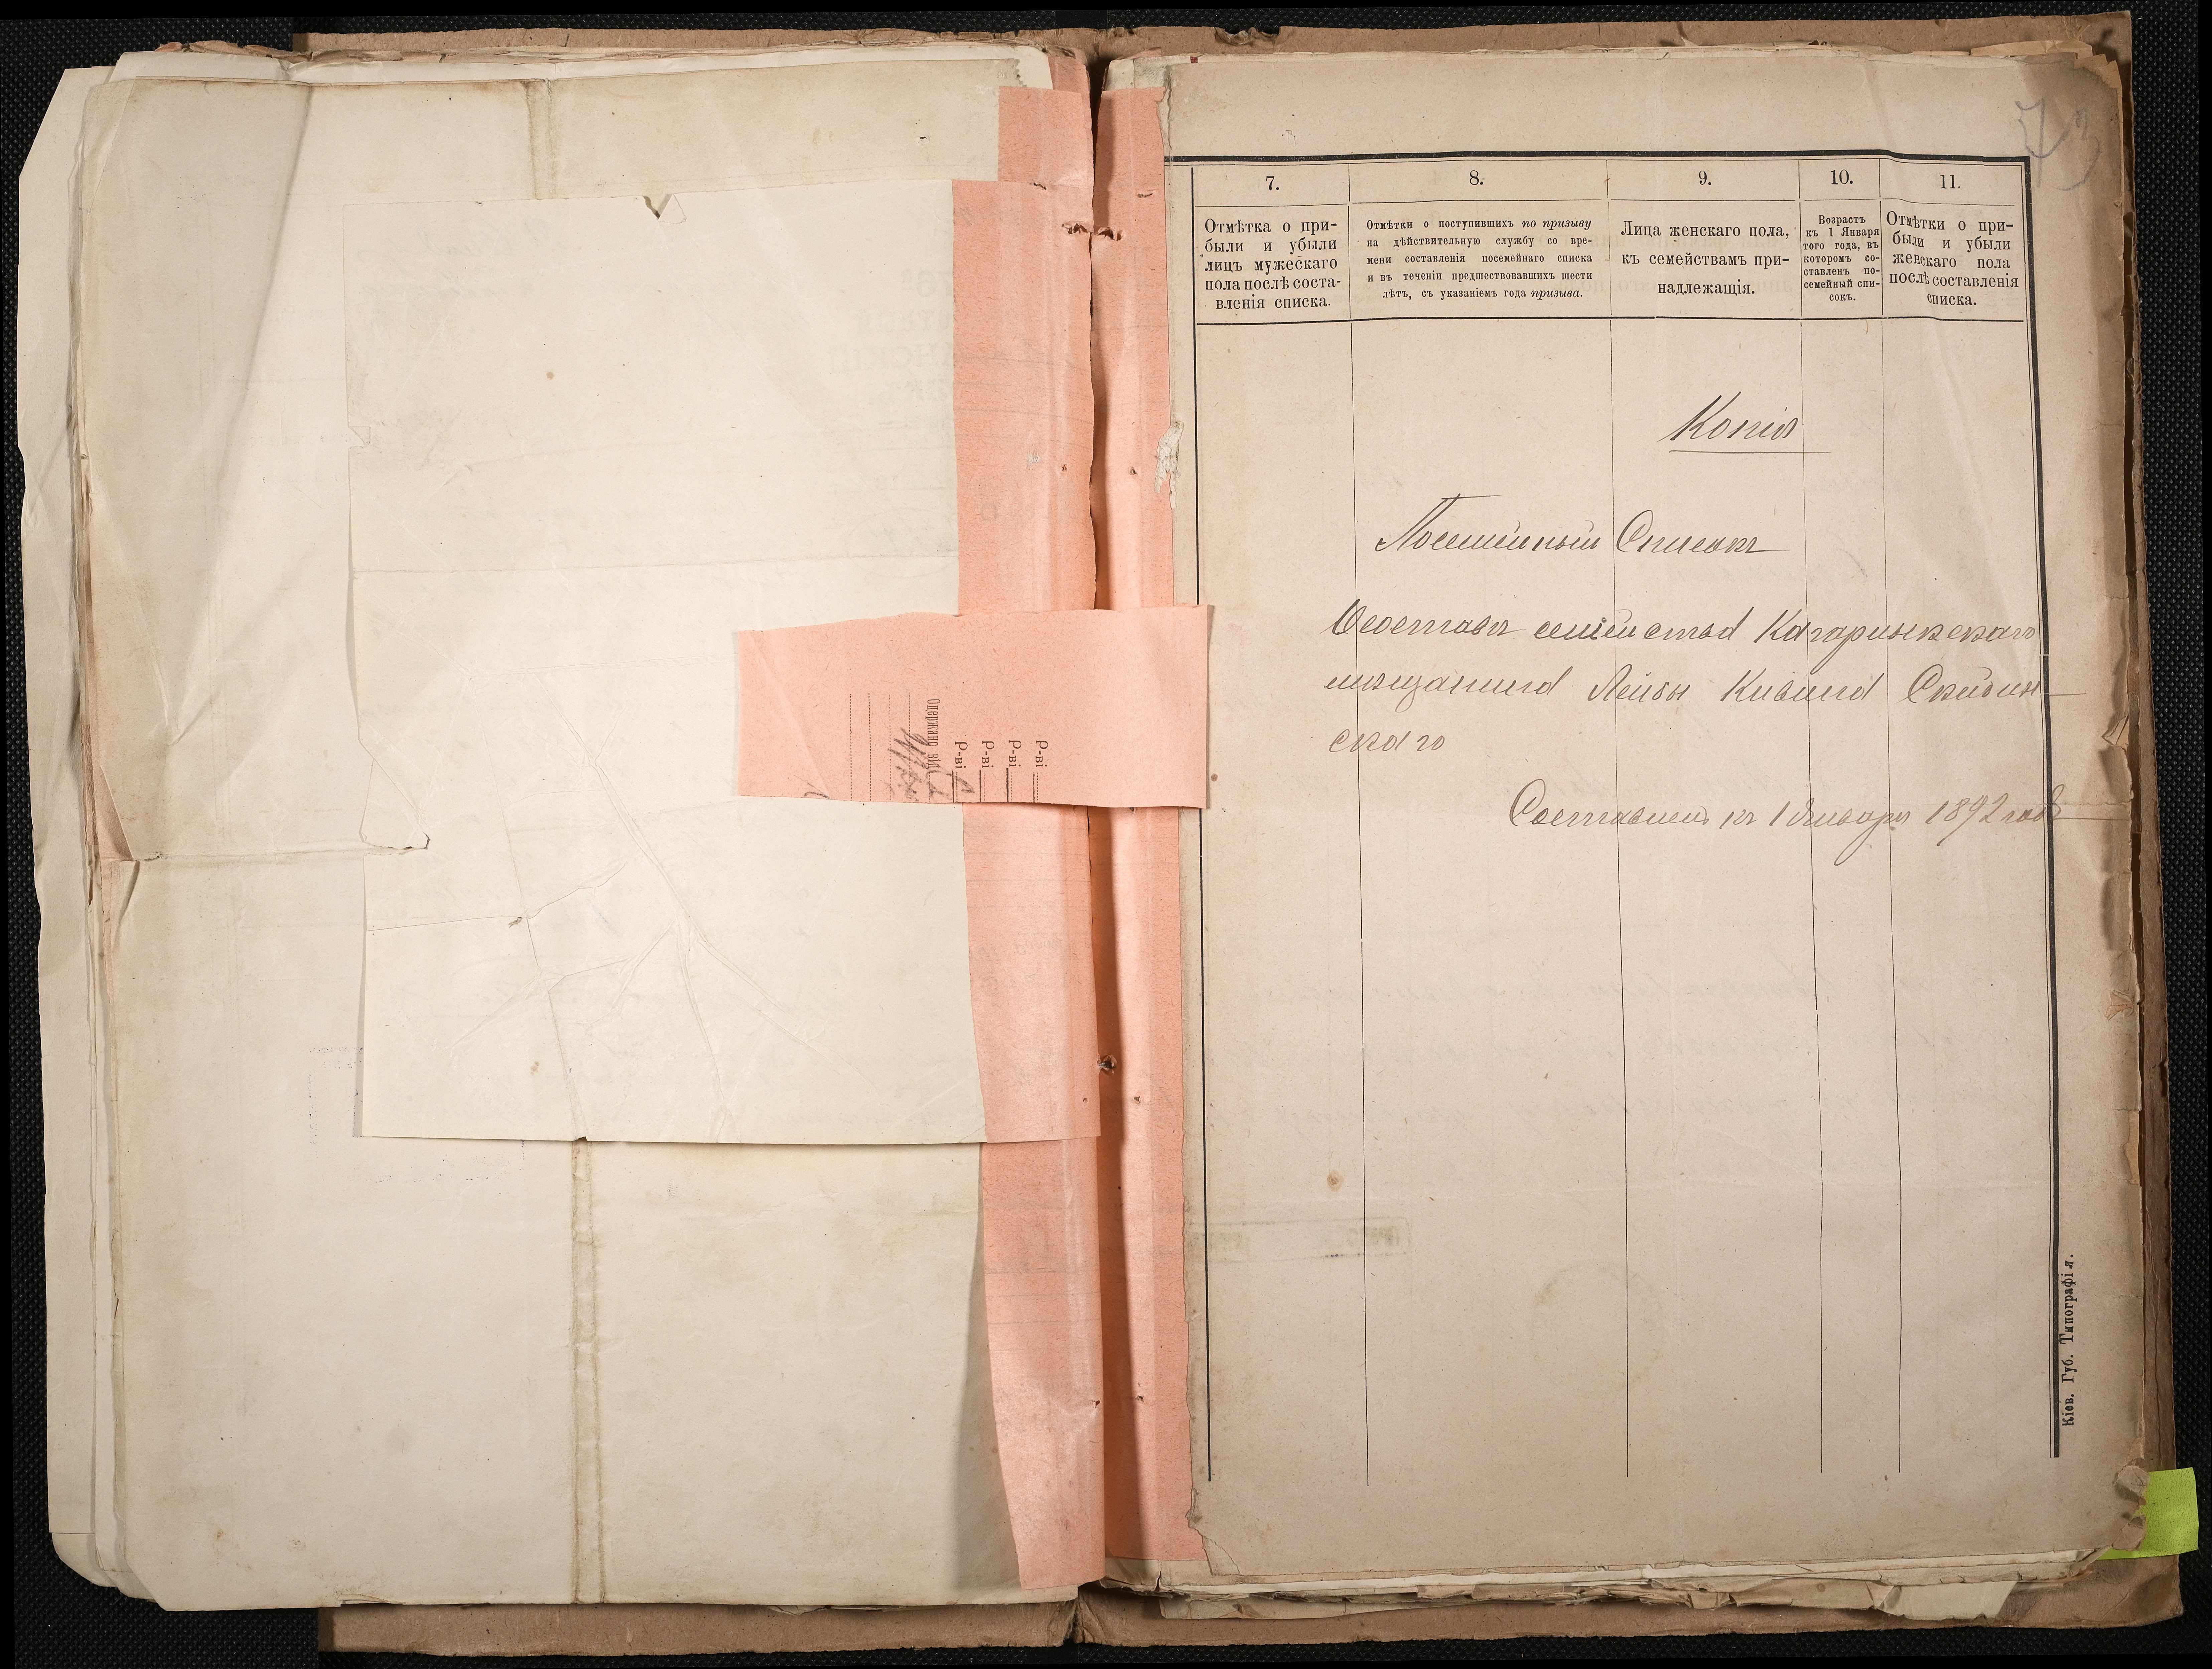 7.
Отмѣтка о при-
были и убыли
лицъ мужескаго
пола послѣ соста-
вленія списка.
8.
Отмѣтки о поступившихъ по призыву
на дѣйствительную службу со вре-
мени составленія посемейнаго списка
и въ теченіи предшествовавшихъ шести
лѣтъ, съ указаніемъ года призыва.
9.
Лица женскаго пола,
къ семействамъ при-
надлежащія.
10.
Возрастъ
къ 1 Января
того года, въ
которомъ со-
ставленъ по-
семейный спи-
сокъ.
11.
Отмѣтки о при-
были и убыли
женскаго пола
послѣ составленія
списка.
Копія
Посемейный Списокъ
О составѣ семейства Кагарлыкскаго
мѣщанина Лейбы Кивина
скаго
Составленъ къ 1 Января 1892 года
Одержано від
Р-ві
Р-ві
Р-ві
Р-ві
Кіев. Губ. Типографія.